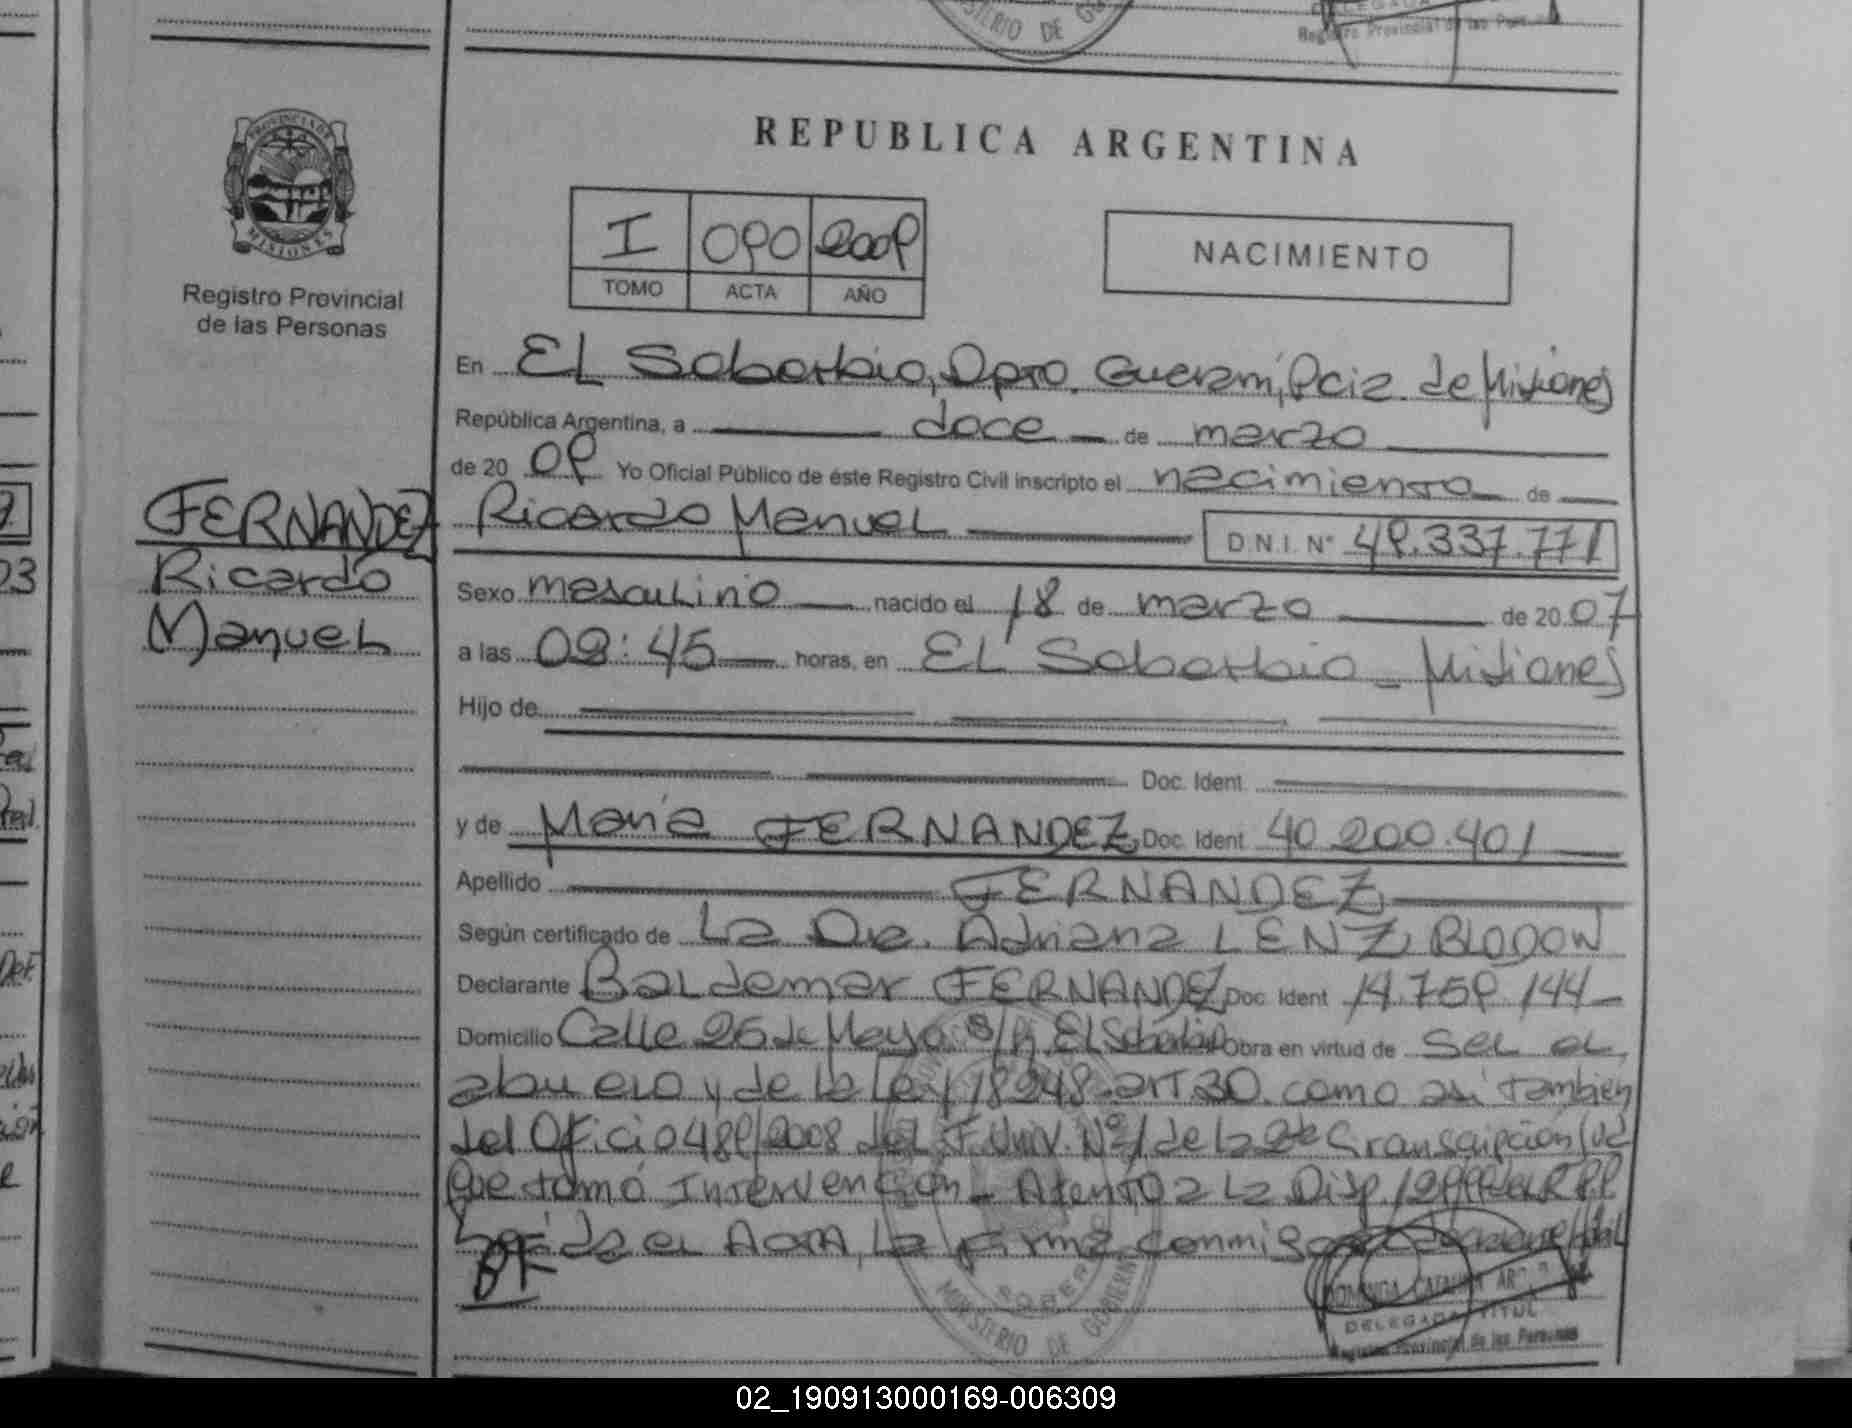 MINISTERIO DE GO
DELEGADA
Registro Provincial de las Pers
REPUBLICA ARGENTINA
PROVINCIA DE
MISIONES
I 090 2009
TOMO ACTA AÑO
NACIMIENTO
Registro Provincial
de las Personas
FERNANDEZ
Ricardo
Manuel
En EL Soberbio, Dpto. Guaraní, Pcia. de Misiones
República Argentina, a doce de marzo
de 20 09 Yo Oficial Público de éste Registro Civil inscripto el nacimiento de
Ricardo Manuel D.N.I. N° 49.337.771
Sexo masculino nacido el 18 de marzo de 20 07
a las 09:45 horas, en EL Soberbio - Misiones
Hijo de
Doc. Ident.
y de María FERNANDEZ Doc. Ident 40.200.401
Apellido FERNANDEZ
Según certificado de La Dra. Adriana LENZ BLODOW
Declarante Baldemar FERNANDEZ Doc. Ident 14.759.144
Domicilio Calle 25 de Mayo s/n EL Soberbio Obra en virtud de ser el
abuelo y de la Ley 18248 art 30 como así también
del Oficio 489/2008 del J. Univ. Nº 1 de la 2da
que tomó Intervención - Atento a La Disp.
Leída el Acta, La firma conmigo
BF
MINISTERIO DE GOBIERN
DELEGADA TITUL
Registro Provincial de las Personas
02_190913000169-006309